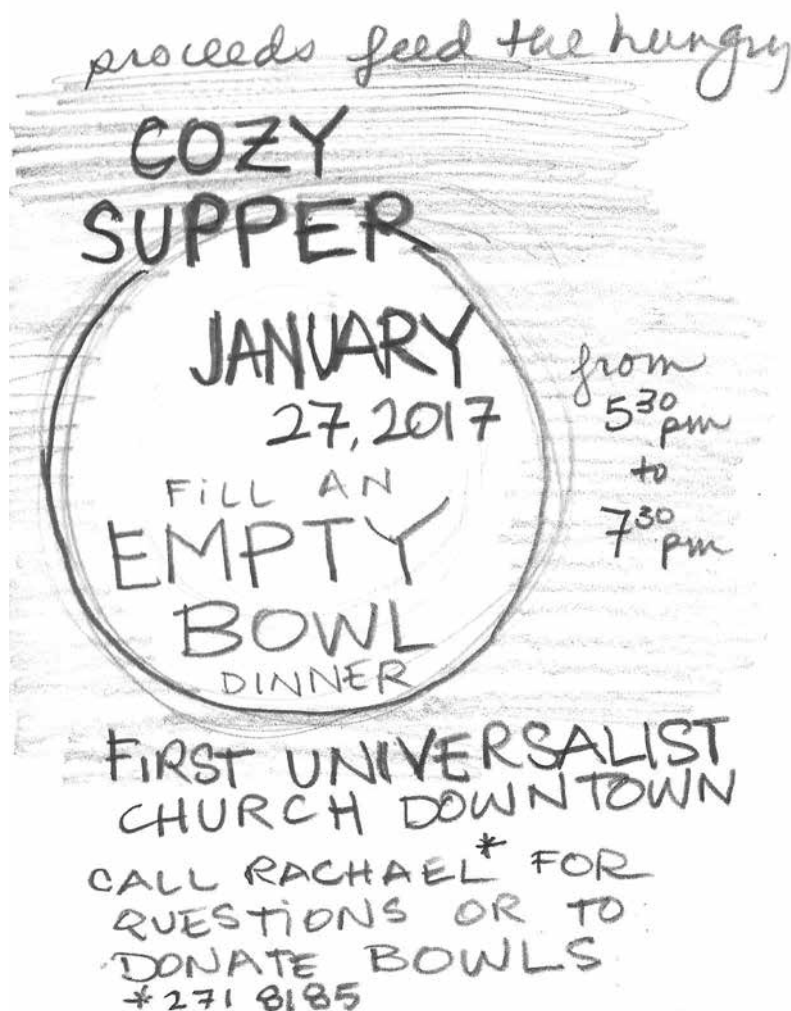 proceeds feed the hungry
COZY
SUPPER
JANUARY
27, 2017
FiLL AN
EMPTY
BOWL
DINNER
from
5 30 pm
to
7 30 pm
FiRST UNIVERSALIST
CHURCH DOWNTOWN
CALL RACHAEL* FOR
QUESTiONS OR TO
DONATE BOWLS
*271 8185